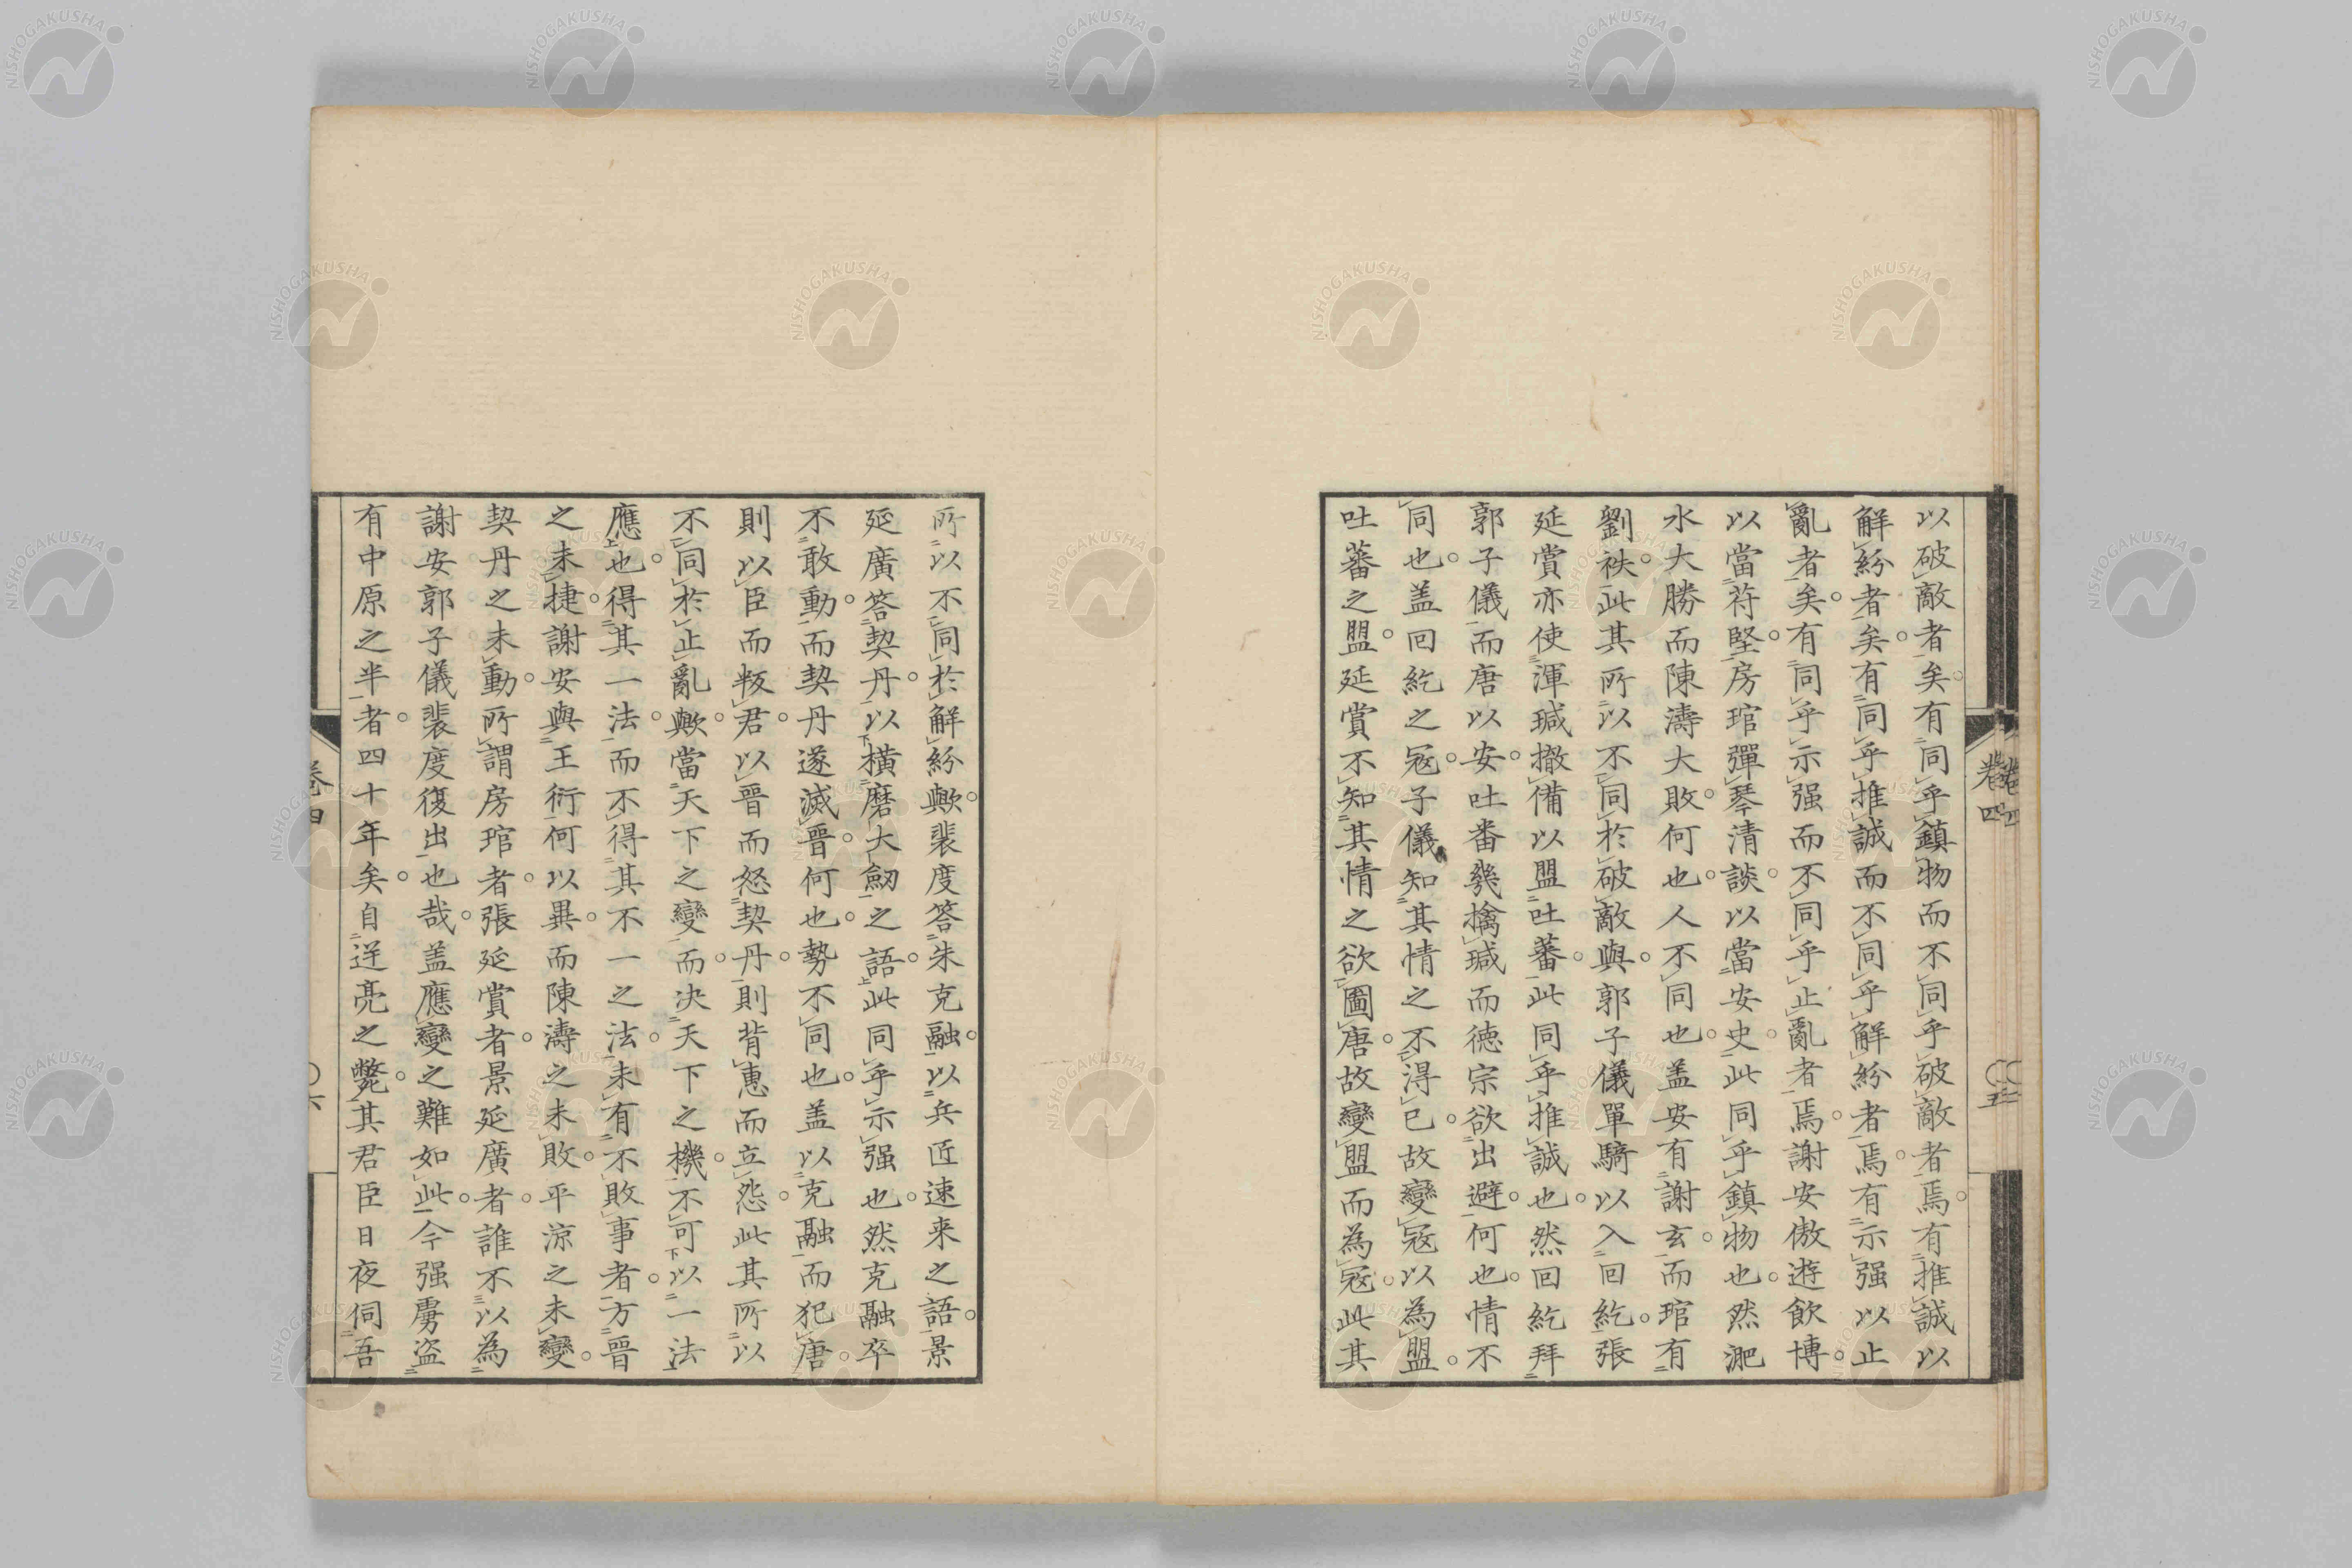 以破敵者矣有同乎鎮物而不同乎破敵者焉有推誠以
解紛者矣有同乎推誠而不同乎解紛者焉有示强以止
亂者矣有同乎示强而不同乎止亂者焉謝安傲遊飲博
以當苻堅房琯彈琴清談以當安史此同乎鎮物也然淝
水大勝而陳濤大敗何也人不同也盖安有謝玄而琯有
劉秩此其所以不同於破敵與郭子儀單騎以入回紇張
延賞亦使渾瑊撤備以盟吐蕃此同乎推誠也然回紇拜
郭子儀而唐以安吐番幾擒瑊而德宗欲出避何也情不
同也盖回紇之冦子儀知其情之不得已故變冦以為盟
吐蕃之盟延賞不知其情之欲圖唐故變盟而為冦此其
卷四
五
所以不同於解紛歟裴度答朱克融以兵匠速来之語景
延廣答契丹以橫磨大劒之語此同乎示强也然克融卒
不敢動而契丹遂滅晋何也勢不同也盖以克融而犯唐
則以臣而叛君以晋而怒契丹則背惠而立怨此其所以
不同於止亂歟當天下之變而决天下之機不可以一法
應也得其一法而不得其不一之法未有不敗事者方晋
之未捷謝安與王衍何以異而陳濤之未敗平凉之未變
契丹之未動所謂房琯者張延賞者景延廣者誰不以為
謝安郭子儀裴度復出也哉盖應變之難如此今强虜盗
有中原之半者四十年矣自逆亮之斃其君臣日夜伺吾
卷四
六
NISHOGAKUSHA